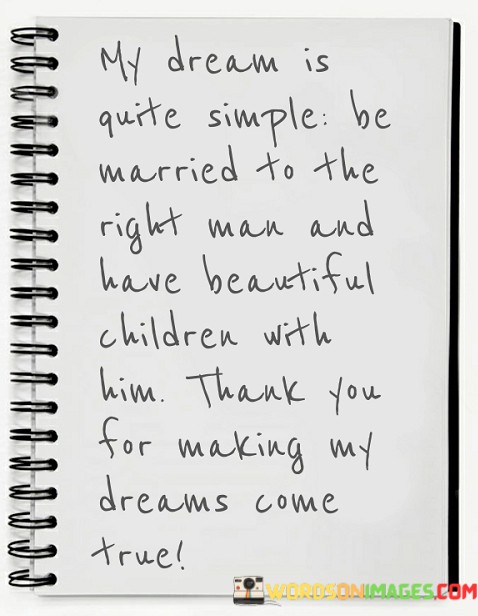 My dream is
quite simple: be
married to the
right man and
have beautiful
children with
him. Thank you
for making my
dreams come
true!
WORDSONIMAGES.COM